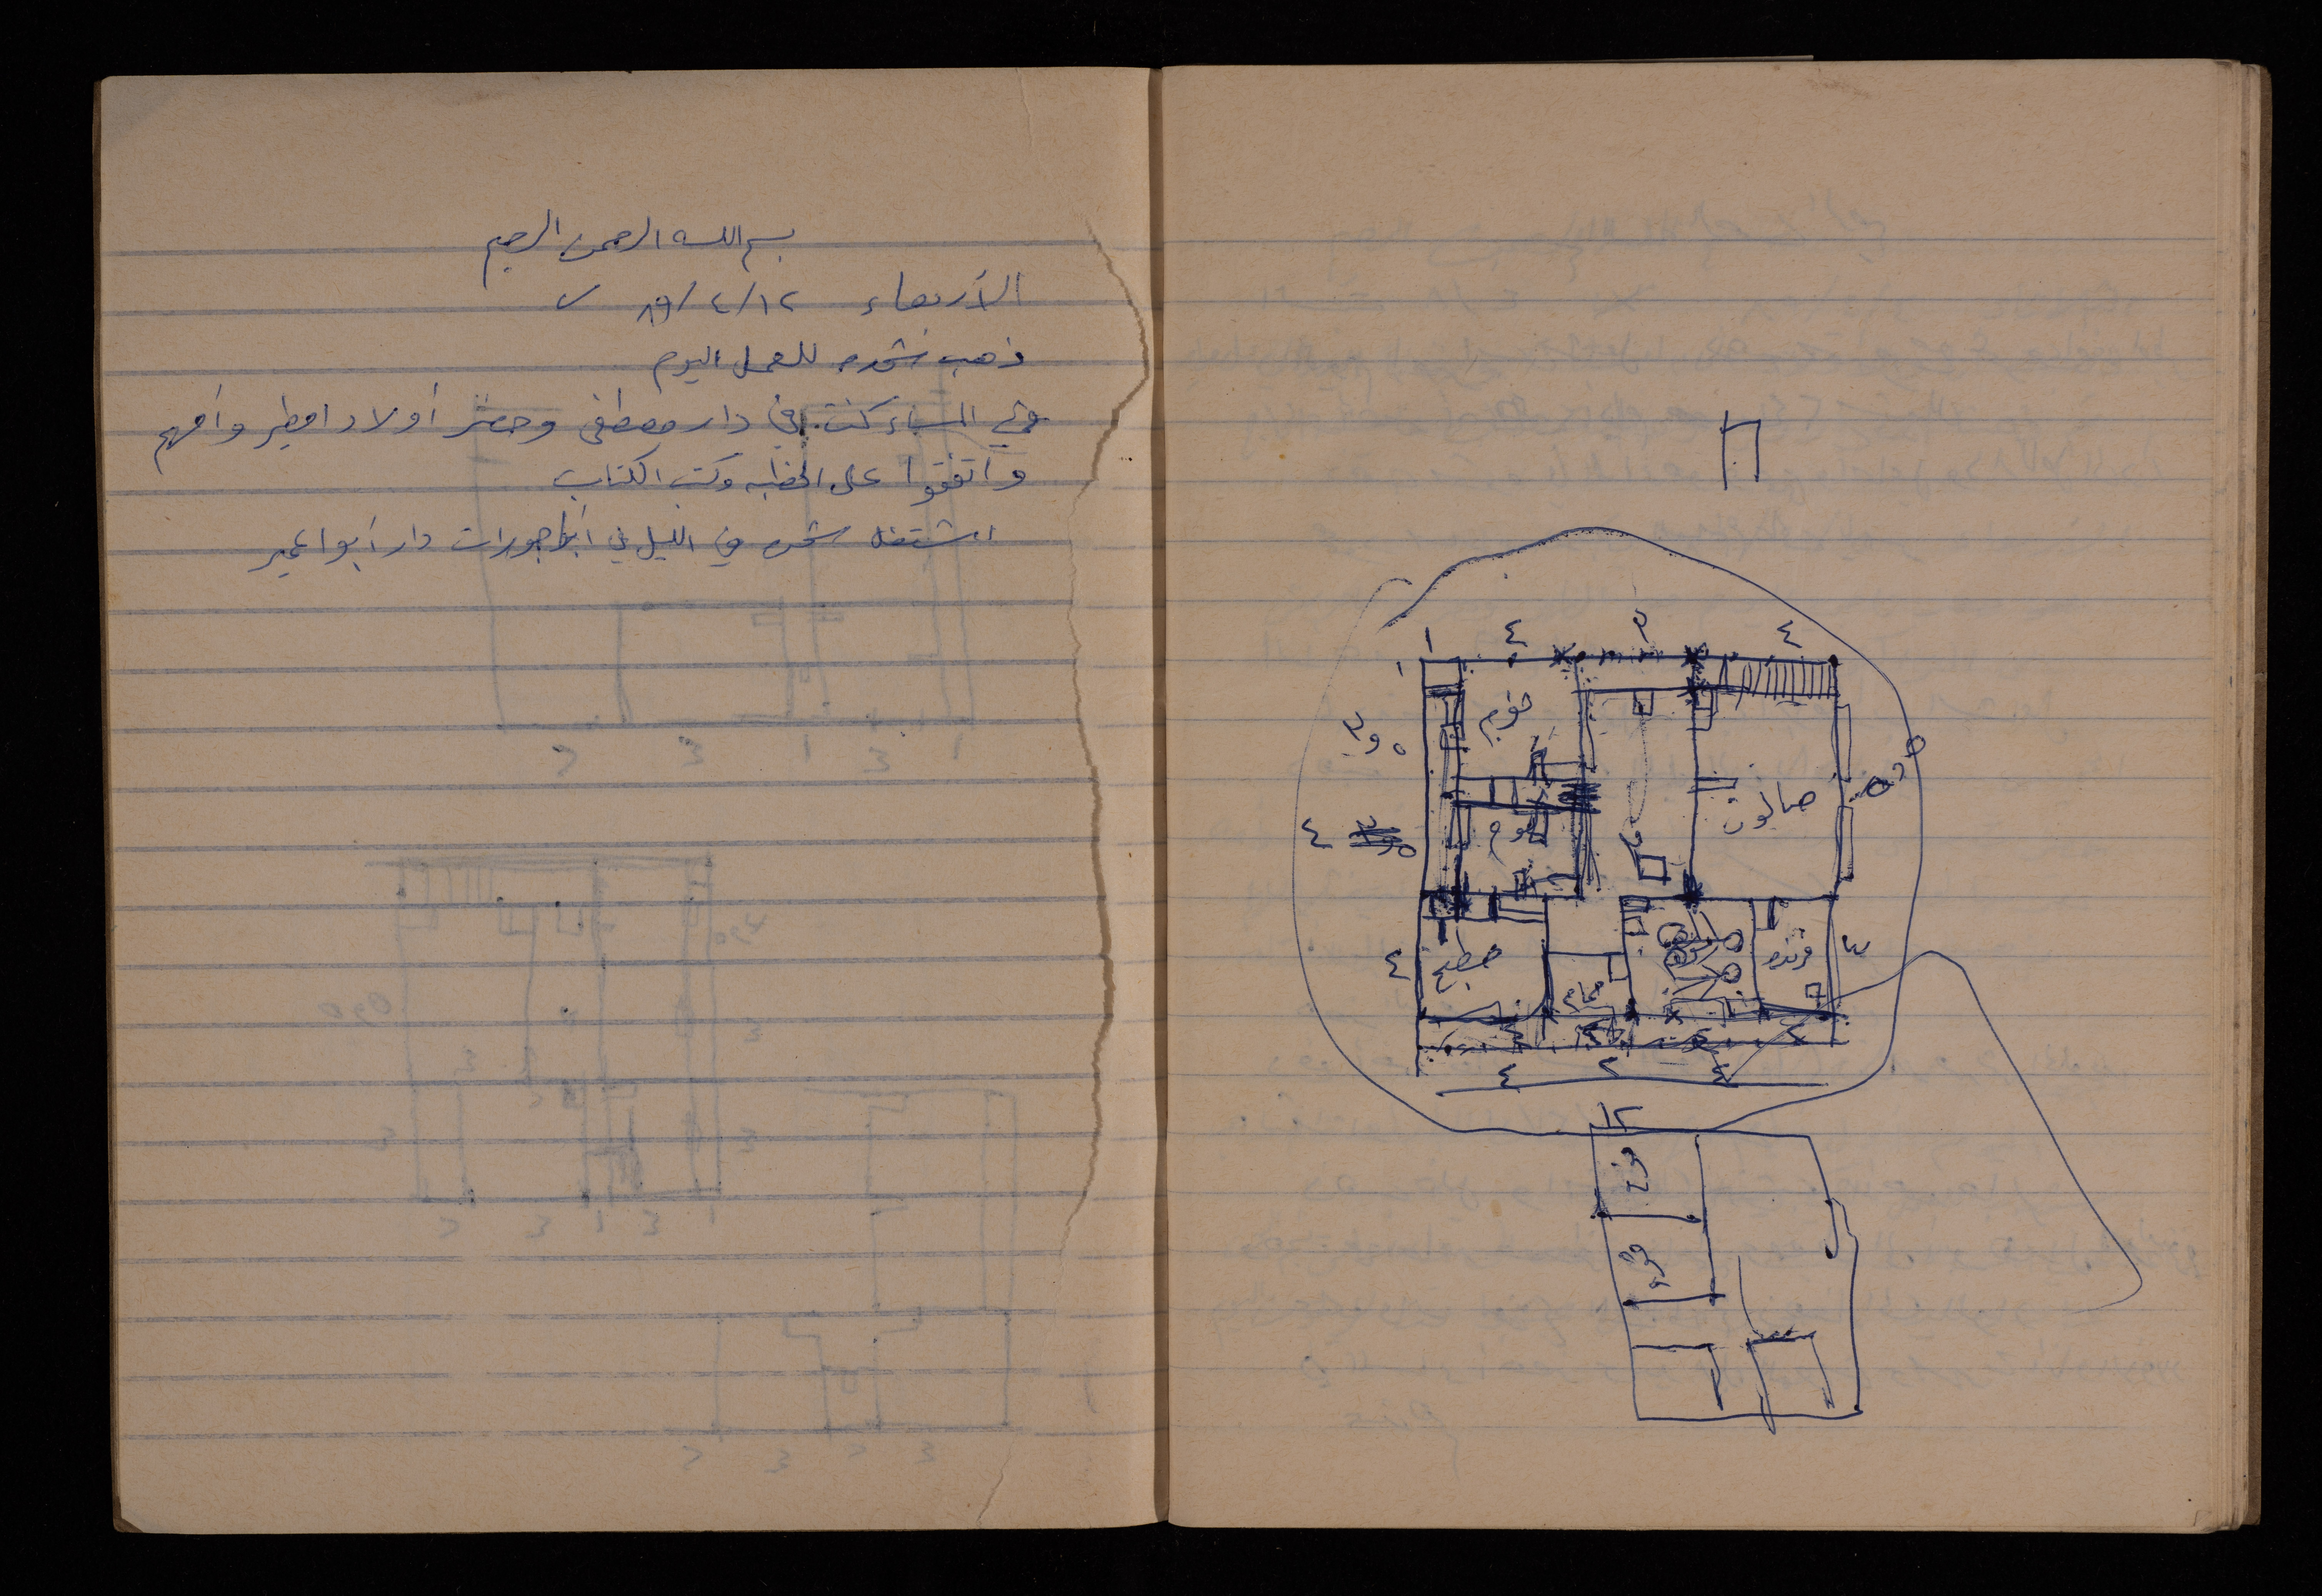 بسم الله الرحمن الرحيم
الأربعاء ١٢/٤/٨٩
ذهب شحده للعمل اليوم
وفي المساء كنت في دار مصطفى وحضر أولاد امطير وأمهم
واتفقوا على الخطبه وكتب الكتاب
اشتغل شحده في الليل في أباجورات دار أبو اعمير
١ ٤ ٣ ٤
١
نوم
٣و٥
صالون
٥و٥
٤
نوم
٤
مطبخ
حمام
فرنده
٣
٤ ٢ ٤
١٢
نوم